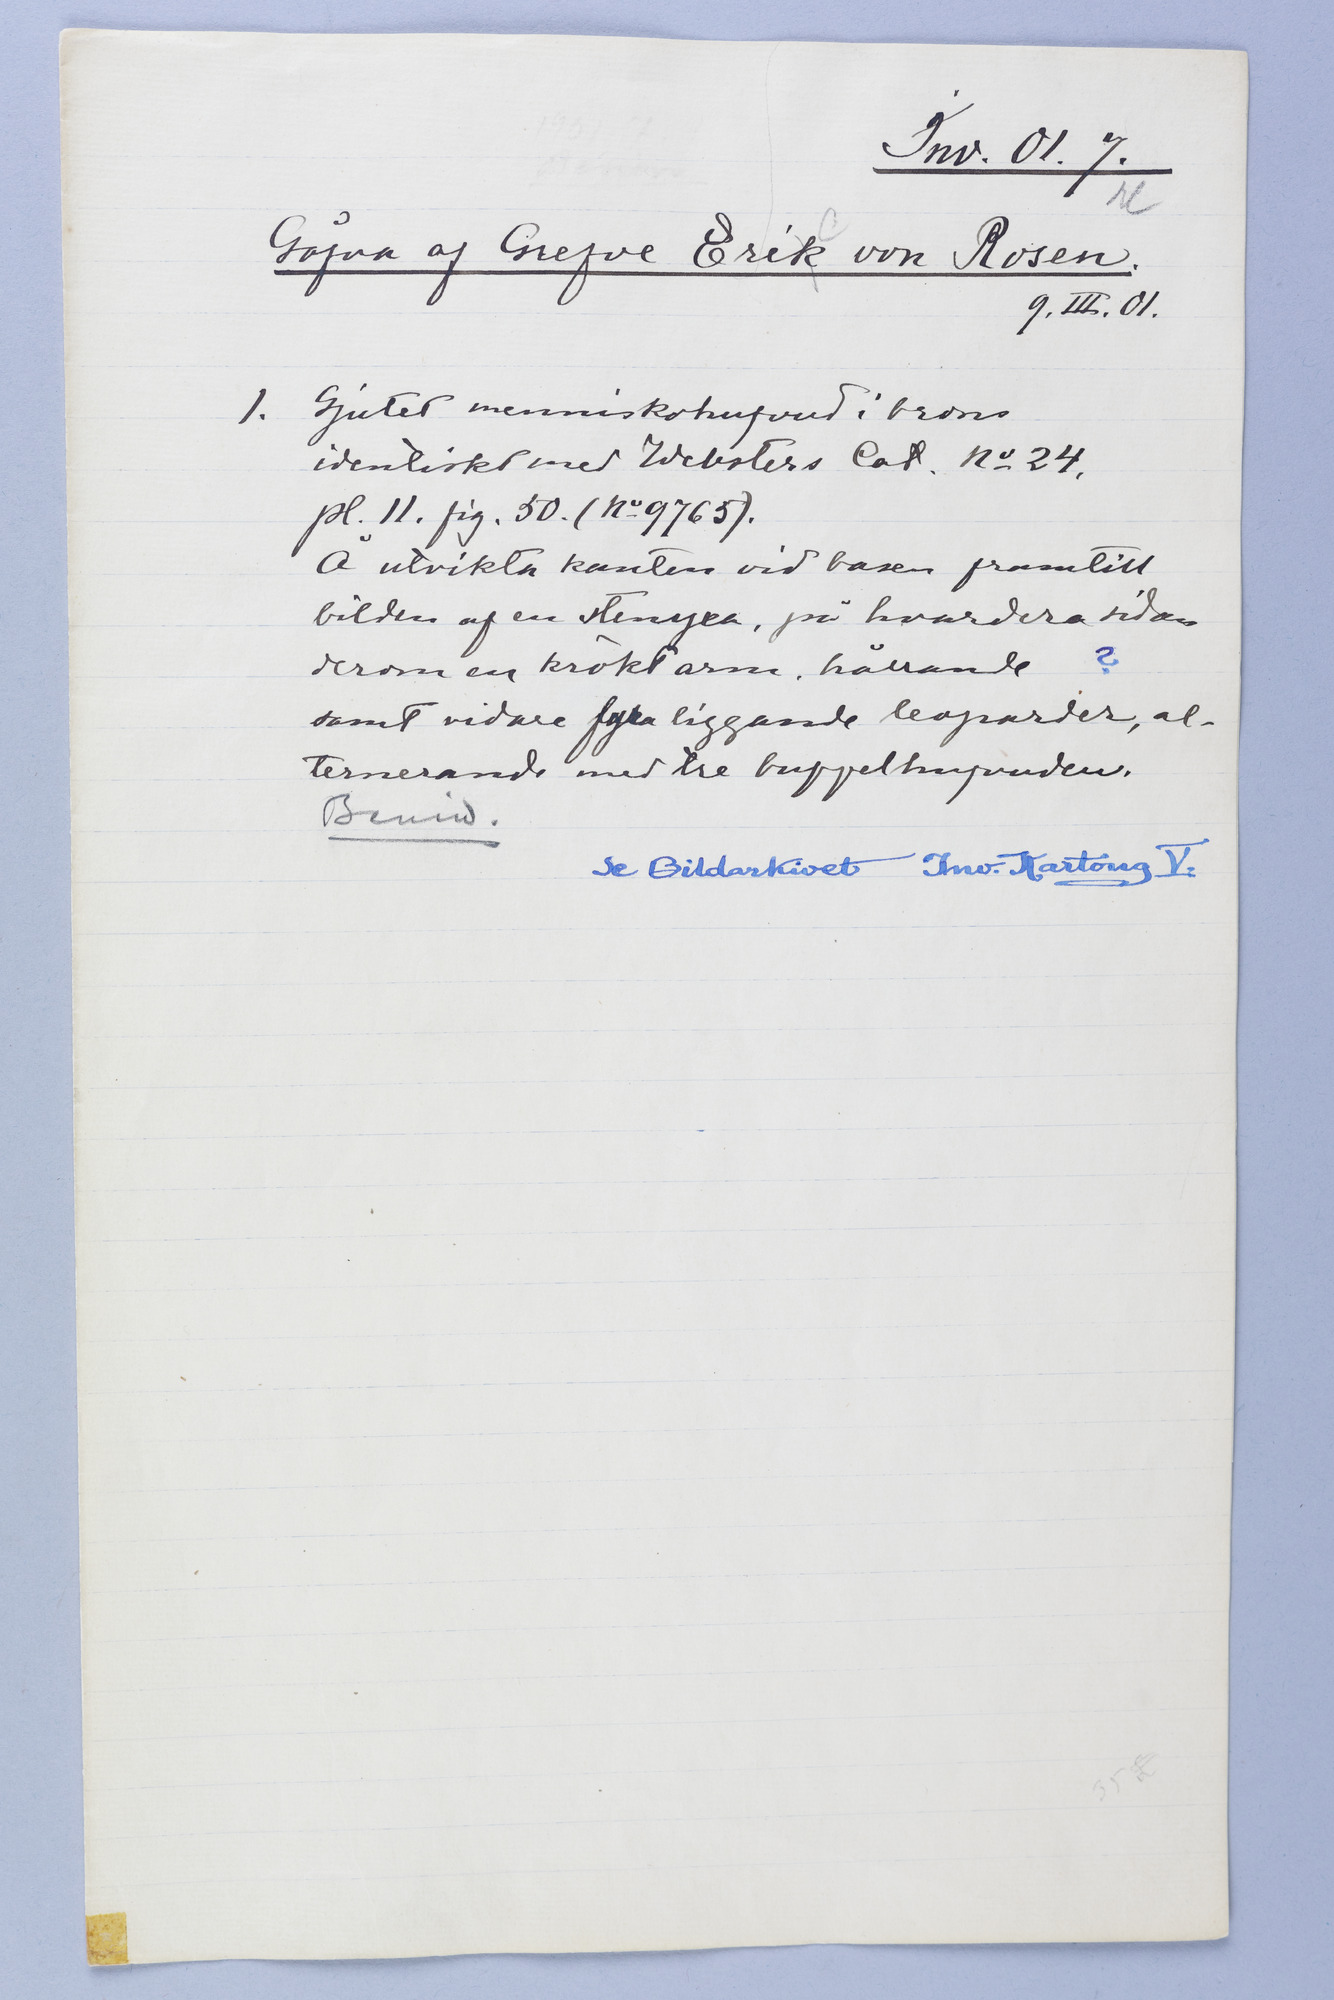 Inv. 01. 7.
Gåfva af Grefve Erik von Rosen.
9. III. 01.
1. Gjutet menniskohufvud i brons
identiskt med Websters Cat. No 24,
pl. 11. fig. 50. (No 9765).
Å utvikta kanten vid basen framtill
bilden af en stenyxa, på hvardera sidan
derom en krökt arm, hållande ?
samt vidare fyra liggande leoparder, al-
ternerande med tre buffelhufvuden.
Benin.
Se Bildarkivet Inv. Kartong V: